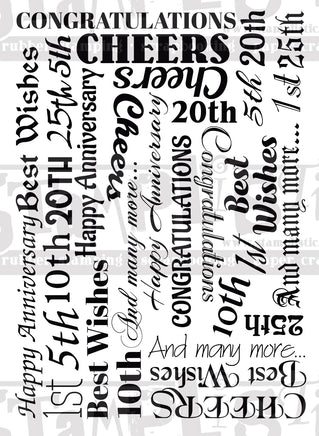 CONGRATULATIONS
CHEERS
Cheers
20th
5th 20th
1st 25th
Best Wishes
25th 5th
Happy Anniversary
20TH
10th
5th
1st
Happy Anniversary
Best Wishes
10th
Cheers
And many more...
Happy Anniversary
CONGRATULATIONS
Congratulations
Best Wishes
10th 1st
And many more...
25th
And many more...
Best Wishes
CHEERS